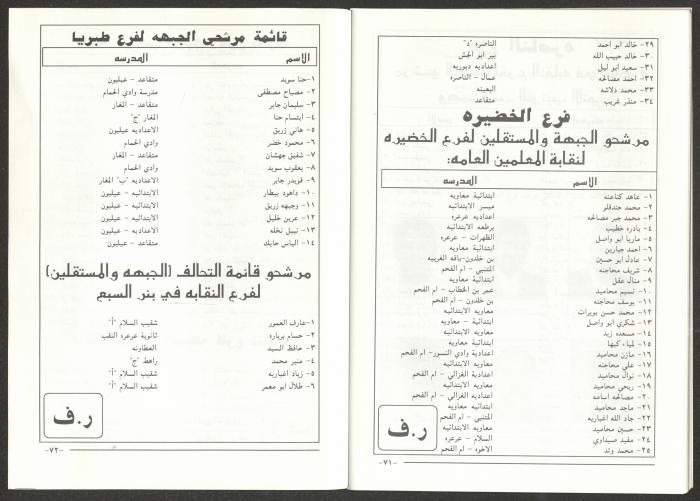 ٢٩- خالد ابو احمد الناصره "د"
٣٠- خالد حبيب الله بير ابو الجش
٣١- سعيد ابو ليل اعداديه دبوريه
٣٢- احمد مصالحه عمال - الناصرة
٣٣- محمد دلاشه البعينه
٣٤- منذر غريب متقاعد
فرع الخضيره
مرشحو الجبهة والمستقلين لفرع الخضيره
لنقابة المعلمين العامه:
الاسم المدرسه
١- عاهد كناعنه ابتدائية معاويه
٢- محمد جندقلو ميسر الابتدائيه
٣- محمد جبر مصالحه اعداديه عرعره
٤- بادره خطيب برطعه الابتدائيه
٥- ماريا ابو واصل الظهرات - عرعره
٦- احمد جبارين ابتدائية معاويه
٧- عادل ابو حسين بن خلدون-باقه الغربيه
٨- شريف محاجنه المتنبي - ام الفحم
٩- منال عقل ابتدائية معاويه
١٠- نسيم محاميد عمر بن الخطاب - ام الفحم
١١- يوسف محاجنه بن خلدون - ام الفحم
١٢- محمد حسن بويرات معاويه الابتدائيه
١٣- شكري ابو واصل ابتدائية - معاويه
١٤- مسعده زيد معاويه الابتدائيه
١٥- لمياء كبها ابتدائية معاويه
١٦- مازن محاميد اعدادية وادي النسور- ام الفحم
١٧- علي محاجنه معاويه الابتدائيه
١٨- نوال محاميد اعدادية الغزالي - ام الفحم
١٩- ربحي محاميد معاويه الابتدائيه
٢٠- مصالحه اسامه اعداديه الغزالي - ام الفحم
٢١- ماجد محاميد ابتدائيه معاويه
٢٢- جاد الله اغباريه المتنبي - ام الفحم
٢٣- حسين محاميد معاويه الابتدائيه
٢٤- مفيد صيداوي السلام - عرعره
٢٥- محمد وتد الاخوه - ام الفحم
ر.ف
-٧١-
قائمة مرشحي الجبهه لفرع طبريا
الاسم المدرسه
١-حنا سويد متقاعد - عيلبون
٢- مصباح مصطفى مدرسة وادي الحمام
٣- سليمان جابر متقاعد - المغار
٤- ابتسام حنا المغار "ج"
٥- هاني زريق الاعداديه عيلبون
٦- محمود خضر وادي الحمام
٧- شفيق جهشان متقاعد - المغار
٨- يعقوب سويد وادي الحمام
٩- قويدر جابر الاعداديه "ب" المغار
١٠- داهود بيطار الابتدائيه - عيلبون
١١- وجيهه زريق الابتدائيه - عيلبون
١٢- عرين خليل الابتدائيه - عيلبون
١٣- نبيل نخله الاعداديه - عيلبون
١٤- الياس حايك متقاعد - عيلبون
مرشحو قائمة التحالف (الجبهه والمستقلين)
لفرع النقابه في بئر السبع
١-عارف العمور شقيب السلام "أ"
٢- حسام برباره ثانوية عرعره النقب
٣- حافظ السيد العطاونه
٤- منير محمد راهط "ج"
٥- زياد اغباريه شقيب السلام "أ"
٦- طلال ابو معمر شقيب السلام "أ"
ر.ف
-٧٢-